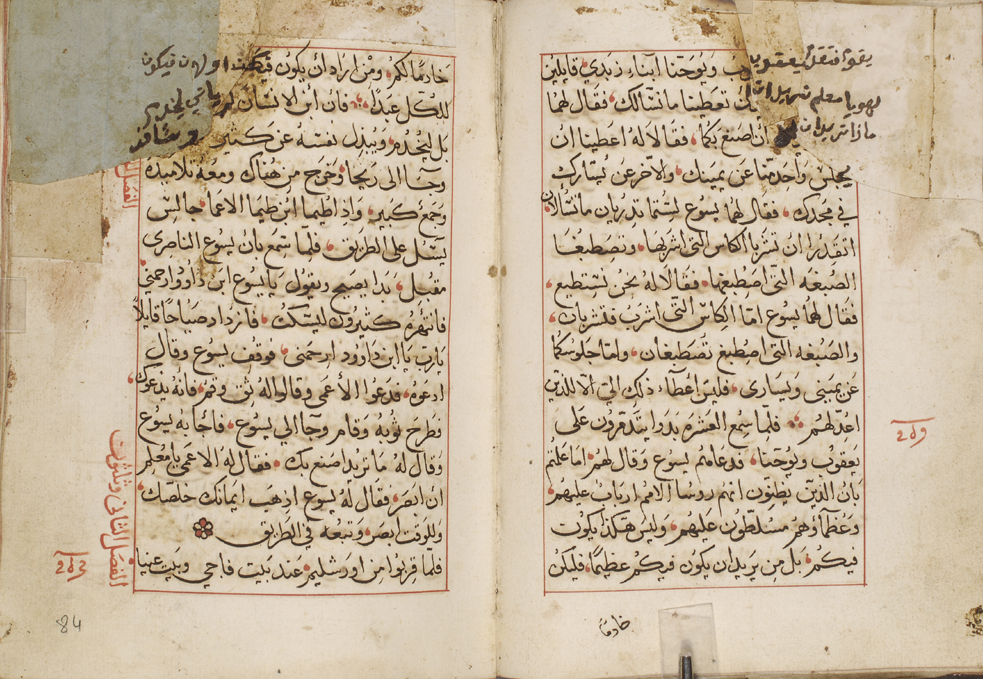 يعقوب ويوحنا ابناء زبدي قايلين
له يا معلم نريد ان تعطينا ما نسالك فقال لهما
ماذا تريدان ان اصنع بكما فقالا له اعطينا ان
يجلس واحد منا عن يمينك والاخر عن يسارك
في مجدك فقال لهما يسوع لستما تدريان ما تسالان
اتقدران ان تشربا الكاس التي اشربها وتصطبغا
الصبغه التي اصطبغها فقالا له نحن نستطيع
فقال لهما يسوع اما الكاس التي اشرب فتشربان
والصبغه التي اصطبغ تصطبغان واما جلوسكما
عن يميني ويساري فليس اعطاء ذلك الي الا للذين
اعد لهم فلما سمع العشره بدوا يتذمرون على
يعقوب ويوحنا فدعاهم يسوع وقال لهم اما علمتم
بان الذين يظنون انهم روسا الامم ارباب عليهم
وعظماؤهم متسلطون عليهم وليس هكذا يكون
فيكم بل من يريد ان يكون فيكم عظيما فليكن
خادمًا
خادمًا لكم ومن اراد ان يكون فيكم اولا فيكون
للكل عبدا فان ابن الانسان لم ياتي ليخدم
بل ليخدم ويبذل نفسه عن كثير
وجا الى ريحا وخرج من هناك ومعه تلاميذه
وجمع كبير واذا طيما ابن طيما الاعما جالس
يسئل على الطريق فلما سمع بان يسوع الناصري
مقبل بدا يصيح ويقول يا يسوع ابن داوود ارحمني
فانتهره كثيرون ليسكت فازداد صياحا قايلا
يارب يا ابن داوود ارحمني فوقف يسوع وقال
ادعوه فدعوا الاعمى وقالوا له ثق وقم فانه يدعوك
فطرح ثوبه وقام وجا الي يسوع فاجابه يسوع
وقال له ما تريد اصنع بك فقال له الاعمى يا معلم
ان ابصر فقال له يسوع اذهب ايمانك خلصك
وللوقت ابصر وتبعه في الطريق
فلما قربوا من اورشليم عند بيت فاجي وبيت عنيا
الفصل الثاني وثلثون
84